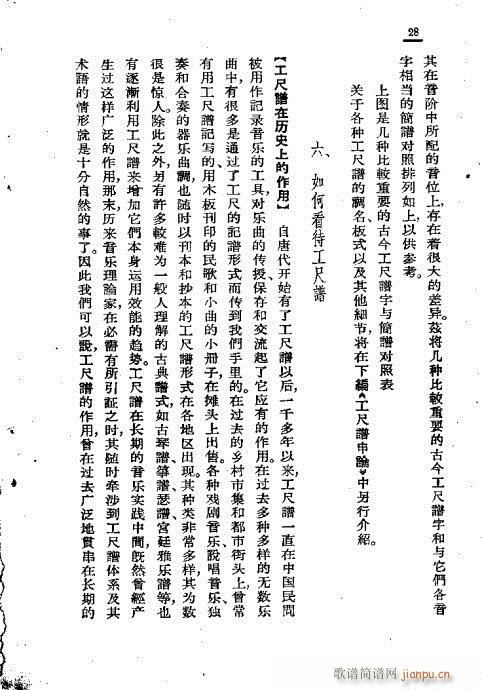 28
其在音阶中所配的音位上，存在着很大的差异。茲将几种比較重要的古今工尺譜字和与它們各音
字相当的簡譜对照排列如上，以供参考。
上图是几种比較重要的古今工尺譜字与簡譜对照表
关于各种工尺譜的調名、板式以及其他細节，将在下編《工尺譜申論》中另行介紹。
六、如何看待工尺譜
【工尺譜在历史上的作用】　自唐代开始有了工尺譜以后，一千多年以来，工尺譜一直在中国民間
被用作記录音乐的工具，对乐曲的传授、保存和交流起了它应有的作用。在过去多种多样的无数乐
曲中，有很多是通过了工尺的記譜形式而传到我們手里的。在过去的乡村市集和都市街头上，曾常
有用工尺譜記写的、用木板刊印的民歌和小曲的小册子，在摊头上出售。各种戏剧音乐、說唱音乐、独
奏和合奏的器乐曲調，也随时以刊本和抄本的工尺譜形式在各地区出現。其种类非常多样，其为数
很是惊人。除此之外，另有許多較难为一般人理解的古典譜式，如古琴譜、箏譜、瑟譜、宮廷雅乐譜等，也
有逐漸利用工尺譜来增加它們本身运用效能的趋势。工尺譜在长期的音乐实践中間，既然曾經产
生过这样广泛的作用，那末，历来音乐理論家在必需有所引証之时，其随时牵涉到工尺譜体系及其
术語的情形，就是十分自然的事了。因此我們可以說，工尺譜的作用，曾在过去广泛地貫串在长期的
歌谱简谱网
jianpu.cn